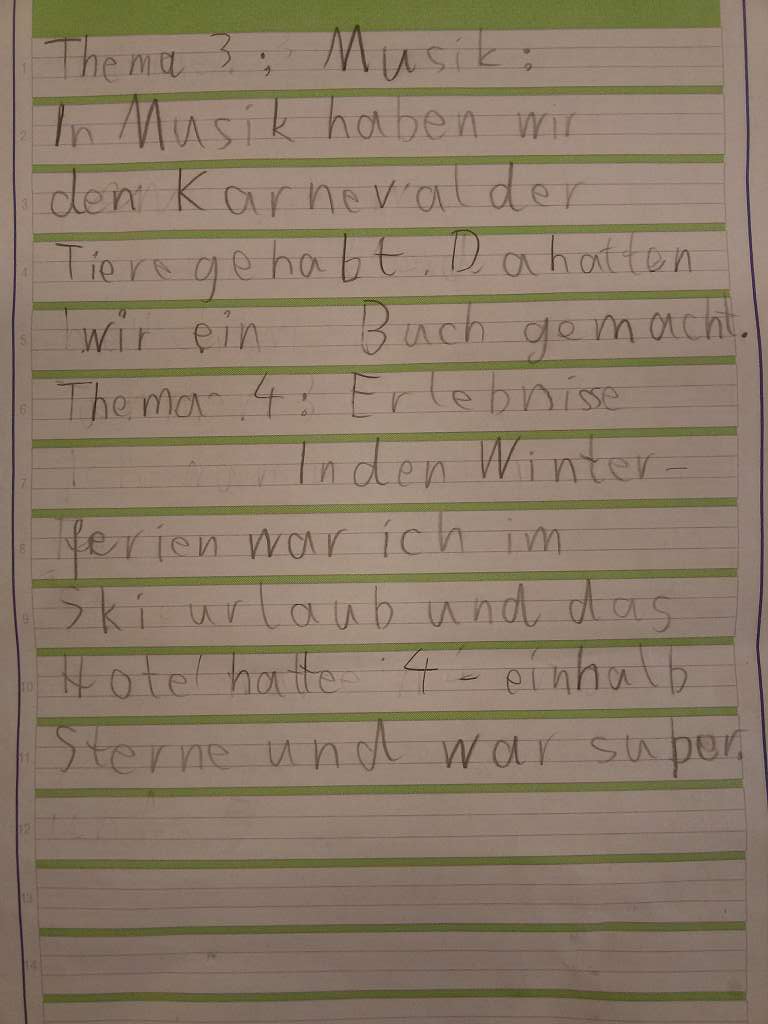 Thema 3: Musik:
In Musik haben wir
den Karneval der
Tiere gehabt. Da hatten
wir ein Buch gemacht.
Thema 4: Erlebnisse
In den Winter-
ferien war ich im
Skiurlaub und das
Hotel hatte 4-einhalb
Sterne und war super.